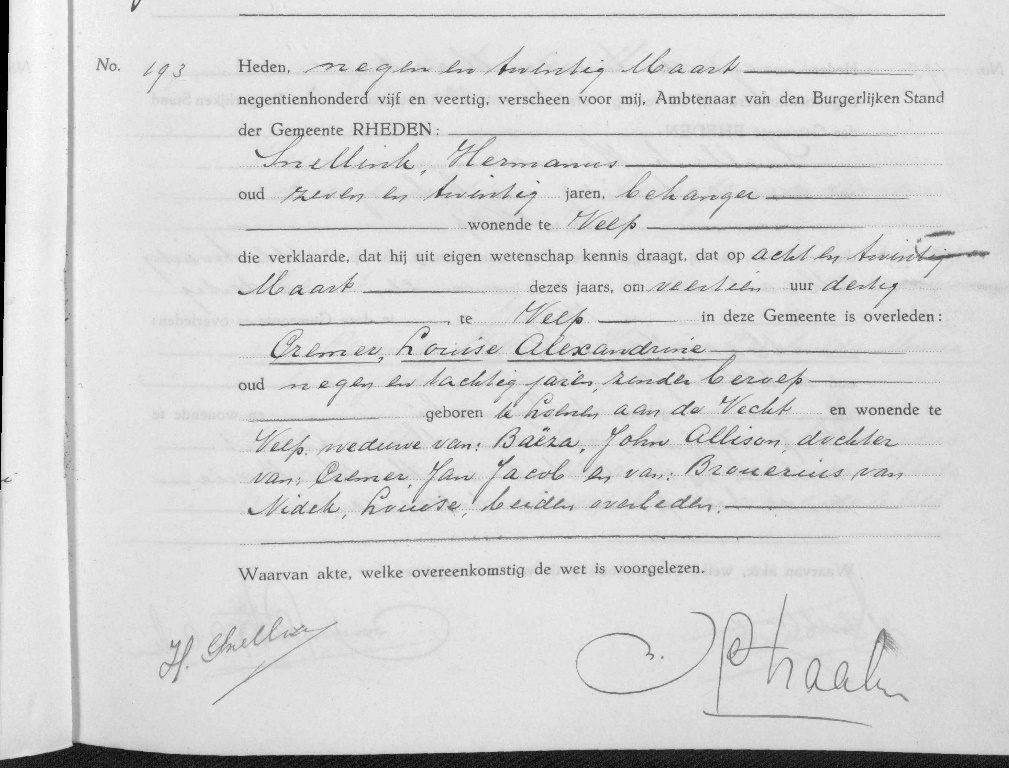 No. 193 Heden, negen en twintig Maart
negentienhonderd vijf en veertig, verscheen voor mij, Ambtenaar van den Burgerlijken Stand
der Gemeente RHEDEN:
Snellink, Hermanus
oud zeven en twintig jaren, behanger
wonende te Velp
die verklaarde, dat hij uit eigen wetenschap kennis draagt, dat op acht en twintig
Maart dezes jaars, om veertien uur dertig
, te Velp in deze Gemeente is overleden:
Cremer, Louise Alexandrine
oud negen en tachtig jaren, zonder beroep
geboren te Loenen aan de Vecht en wonende te
Velp, weduwe van: Baëza, John Allison, dochter
van: Cremer, Jan Jacob en van: Brouerius van
Nidek, Louise, beiden overleden.
Waarvan akte, welke overeenkomstig de wet is voorgelezen.
H. Snellink